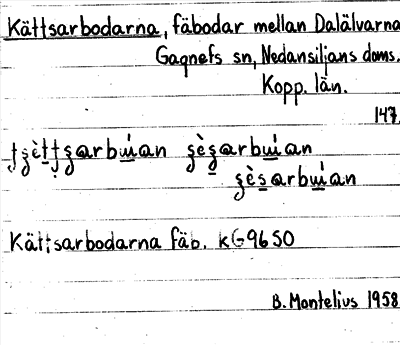 Kättsarbodarna, fäbodar mellan Dalälvarna
Gagnefs sn, Nedansiljans doms.
Kopp. län.
147.
Kättsarbodarna fäb. kG9650
B. Montelius 1958